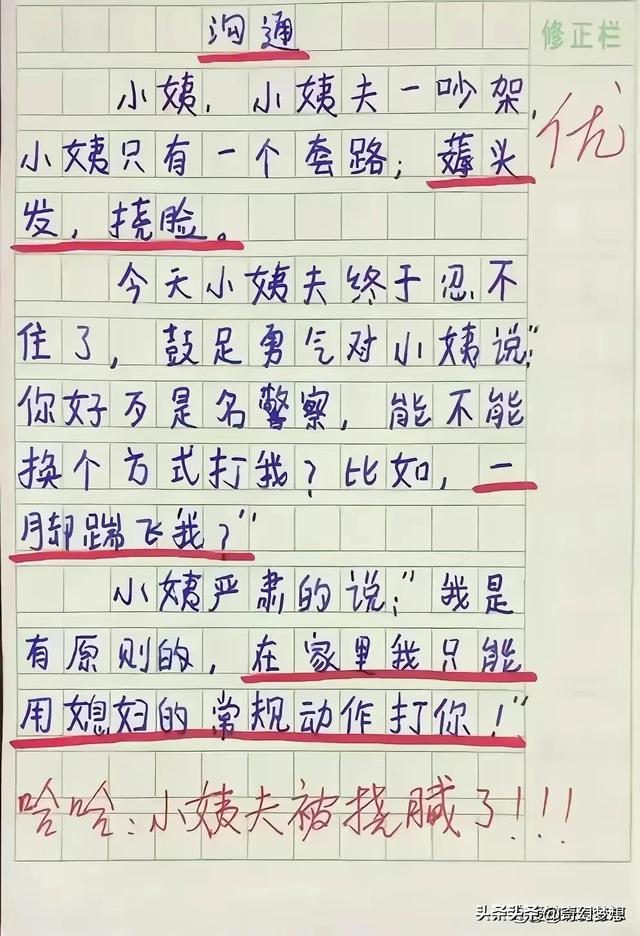 沟通
修正栏
小姨，小姨夫一吵架，
优
小姨只有一个套路；薅头
发，挠脸。
今天小姨夫终于忍不
住了，鼓足勇气对小姨说：“
你好歹是名警察，能不能
换个方式打我？比如，一
脚踹飞我？”
小姨严肃的说：“我是
有原则的，在家里我只能
用媳妇的常规动作打你！”
哈哈：小姨夫被挠臓了！！！
头条头条@奇幻梦想